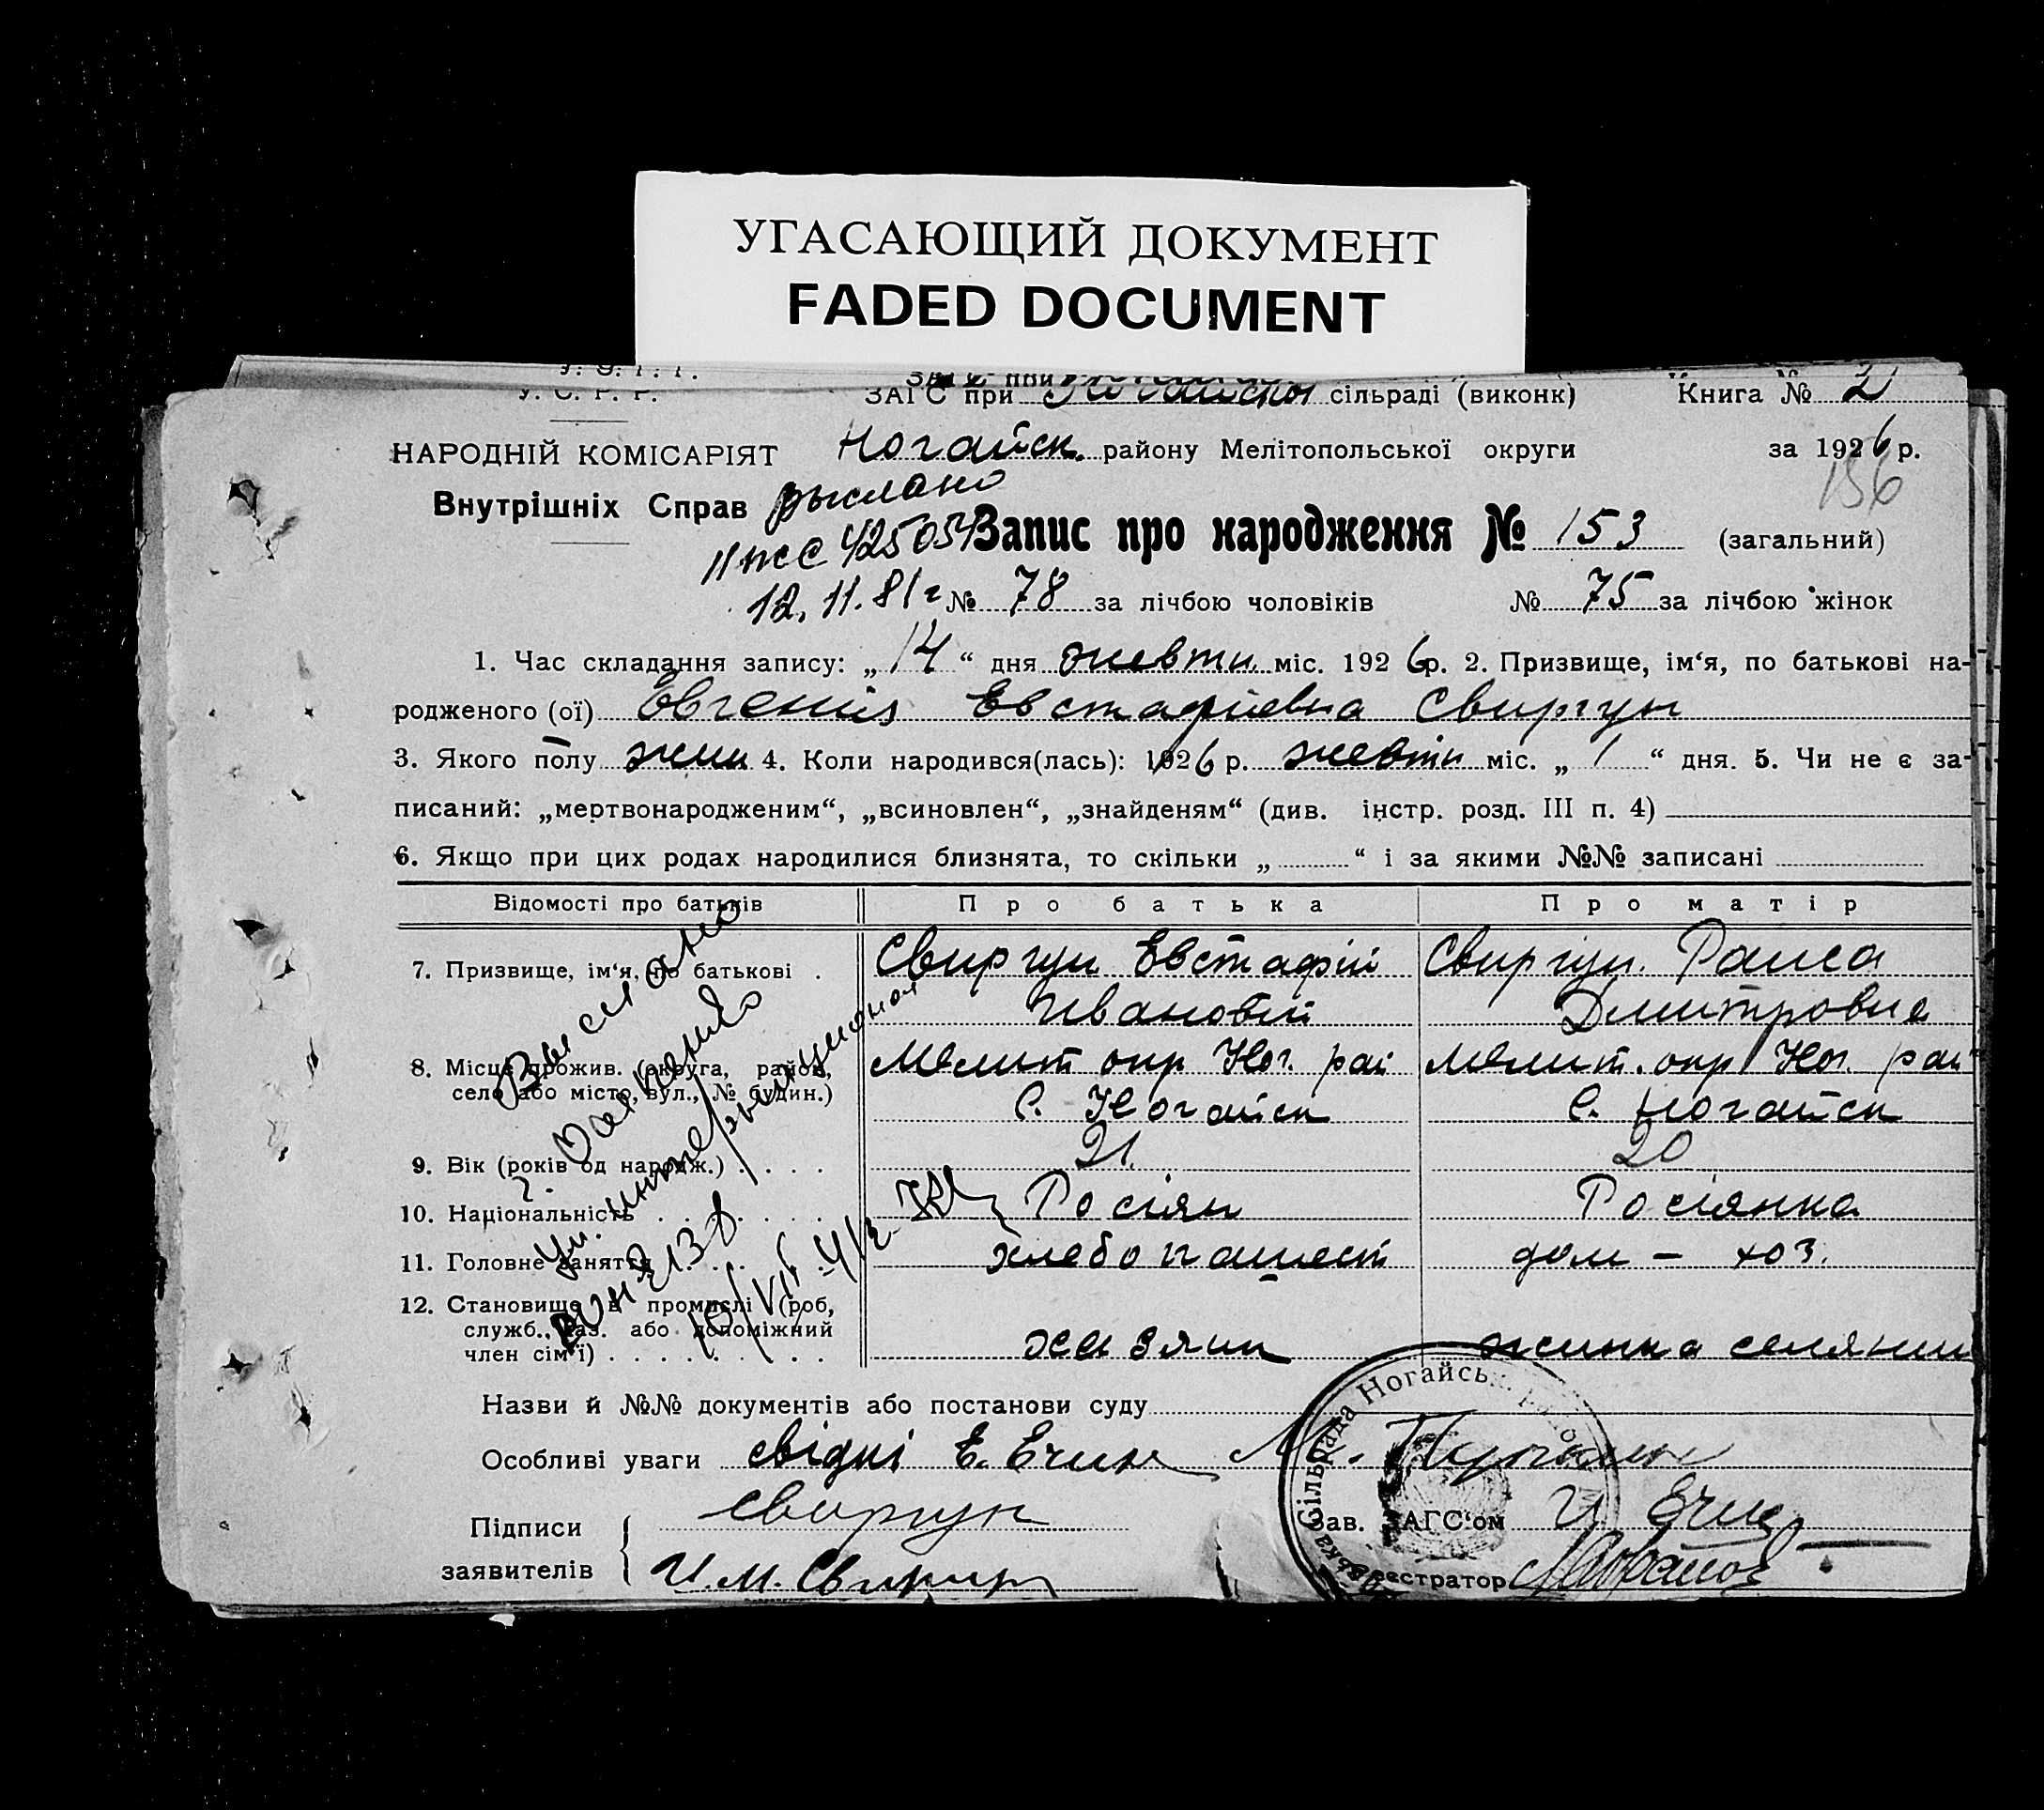 УГАСАЮЩИЙ ДОКУМЕНТ
FADED DOCUMENT
У. С. Р. Р.
ЗАГС при Ногайской сільраді (виконк) Книга № 2
НАРОДНІЙ КОМІСАРІЯТ Ногайск. району Мелітопольської округи за 1926 р.
156
Внутрішніх Справ выслано
Запис про народження № 153 (загальний)
12.11.81 г № 78 за лічбою чоловіків № 75 за лічбою жінок
1. Час складання запису: „14“ дня жевтн міс. 1926 р. 2. Призвище, ім‘я, по батькові на-
родженого (ої) Евгения Евстафиевна Свиргун
3. Якого полу жин 4. Коли народився(лась): 1926 р. жевтн міс. „1“ дня. 5. Чи не є за-
писаний: „мертвонародженим“, „всиновлен“, „знайденям“ (див. інстр. розд. III п. 4)
6. Якщо при цих родах народилися близнята, то скільки „ “ і за якими №№ записані
Відомості про батьків Про батька Про матір
7. Призвище, ім‘я, по батькові . Свиргун Евстафій Свиргун. Раиса
Ивановій Дмитровна
8. Місце прожив. (округа, район, Мелит окр Ног. рай Мелит. окр Ног. рай
село або місто, вул., № будин.) С. Ногайск С. Ногайск
9. Вік (років од народж.) . . . . 21. 20
10. Національність . . . . . . . Росіян Росіянка
11. Головне заняття . . . . . . хлебопашест дом – хоз.
12. Становище в промислі (роб,
служб., хаз. або допоміжний
член сім‘ї) . . . . . . . . . хазяин жинка селянин
Выслано
10/VII 41 г
Назви й №№ документів або постанови суду
Особливі уваги свідкі Е. Ечин М.
Підписи Свиргун Зав. ЗАГС‘ом И Ечин
заявителів И. М. Свиргун Реєстратор
Сільрада Ногайськ.